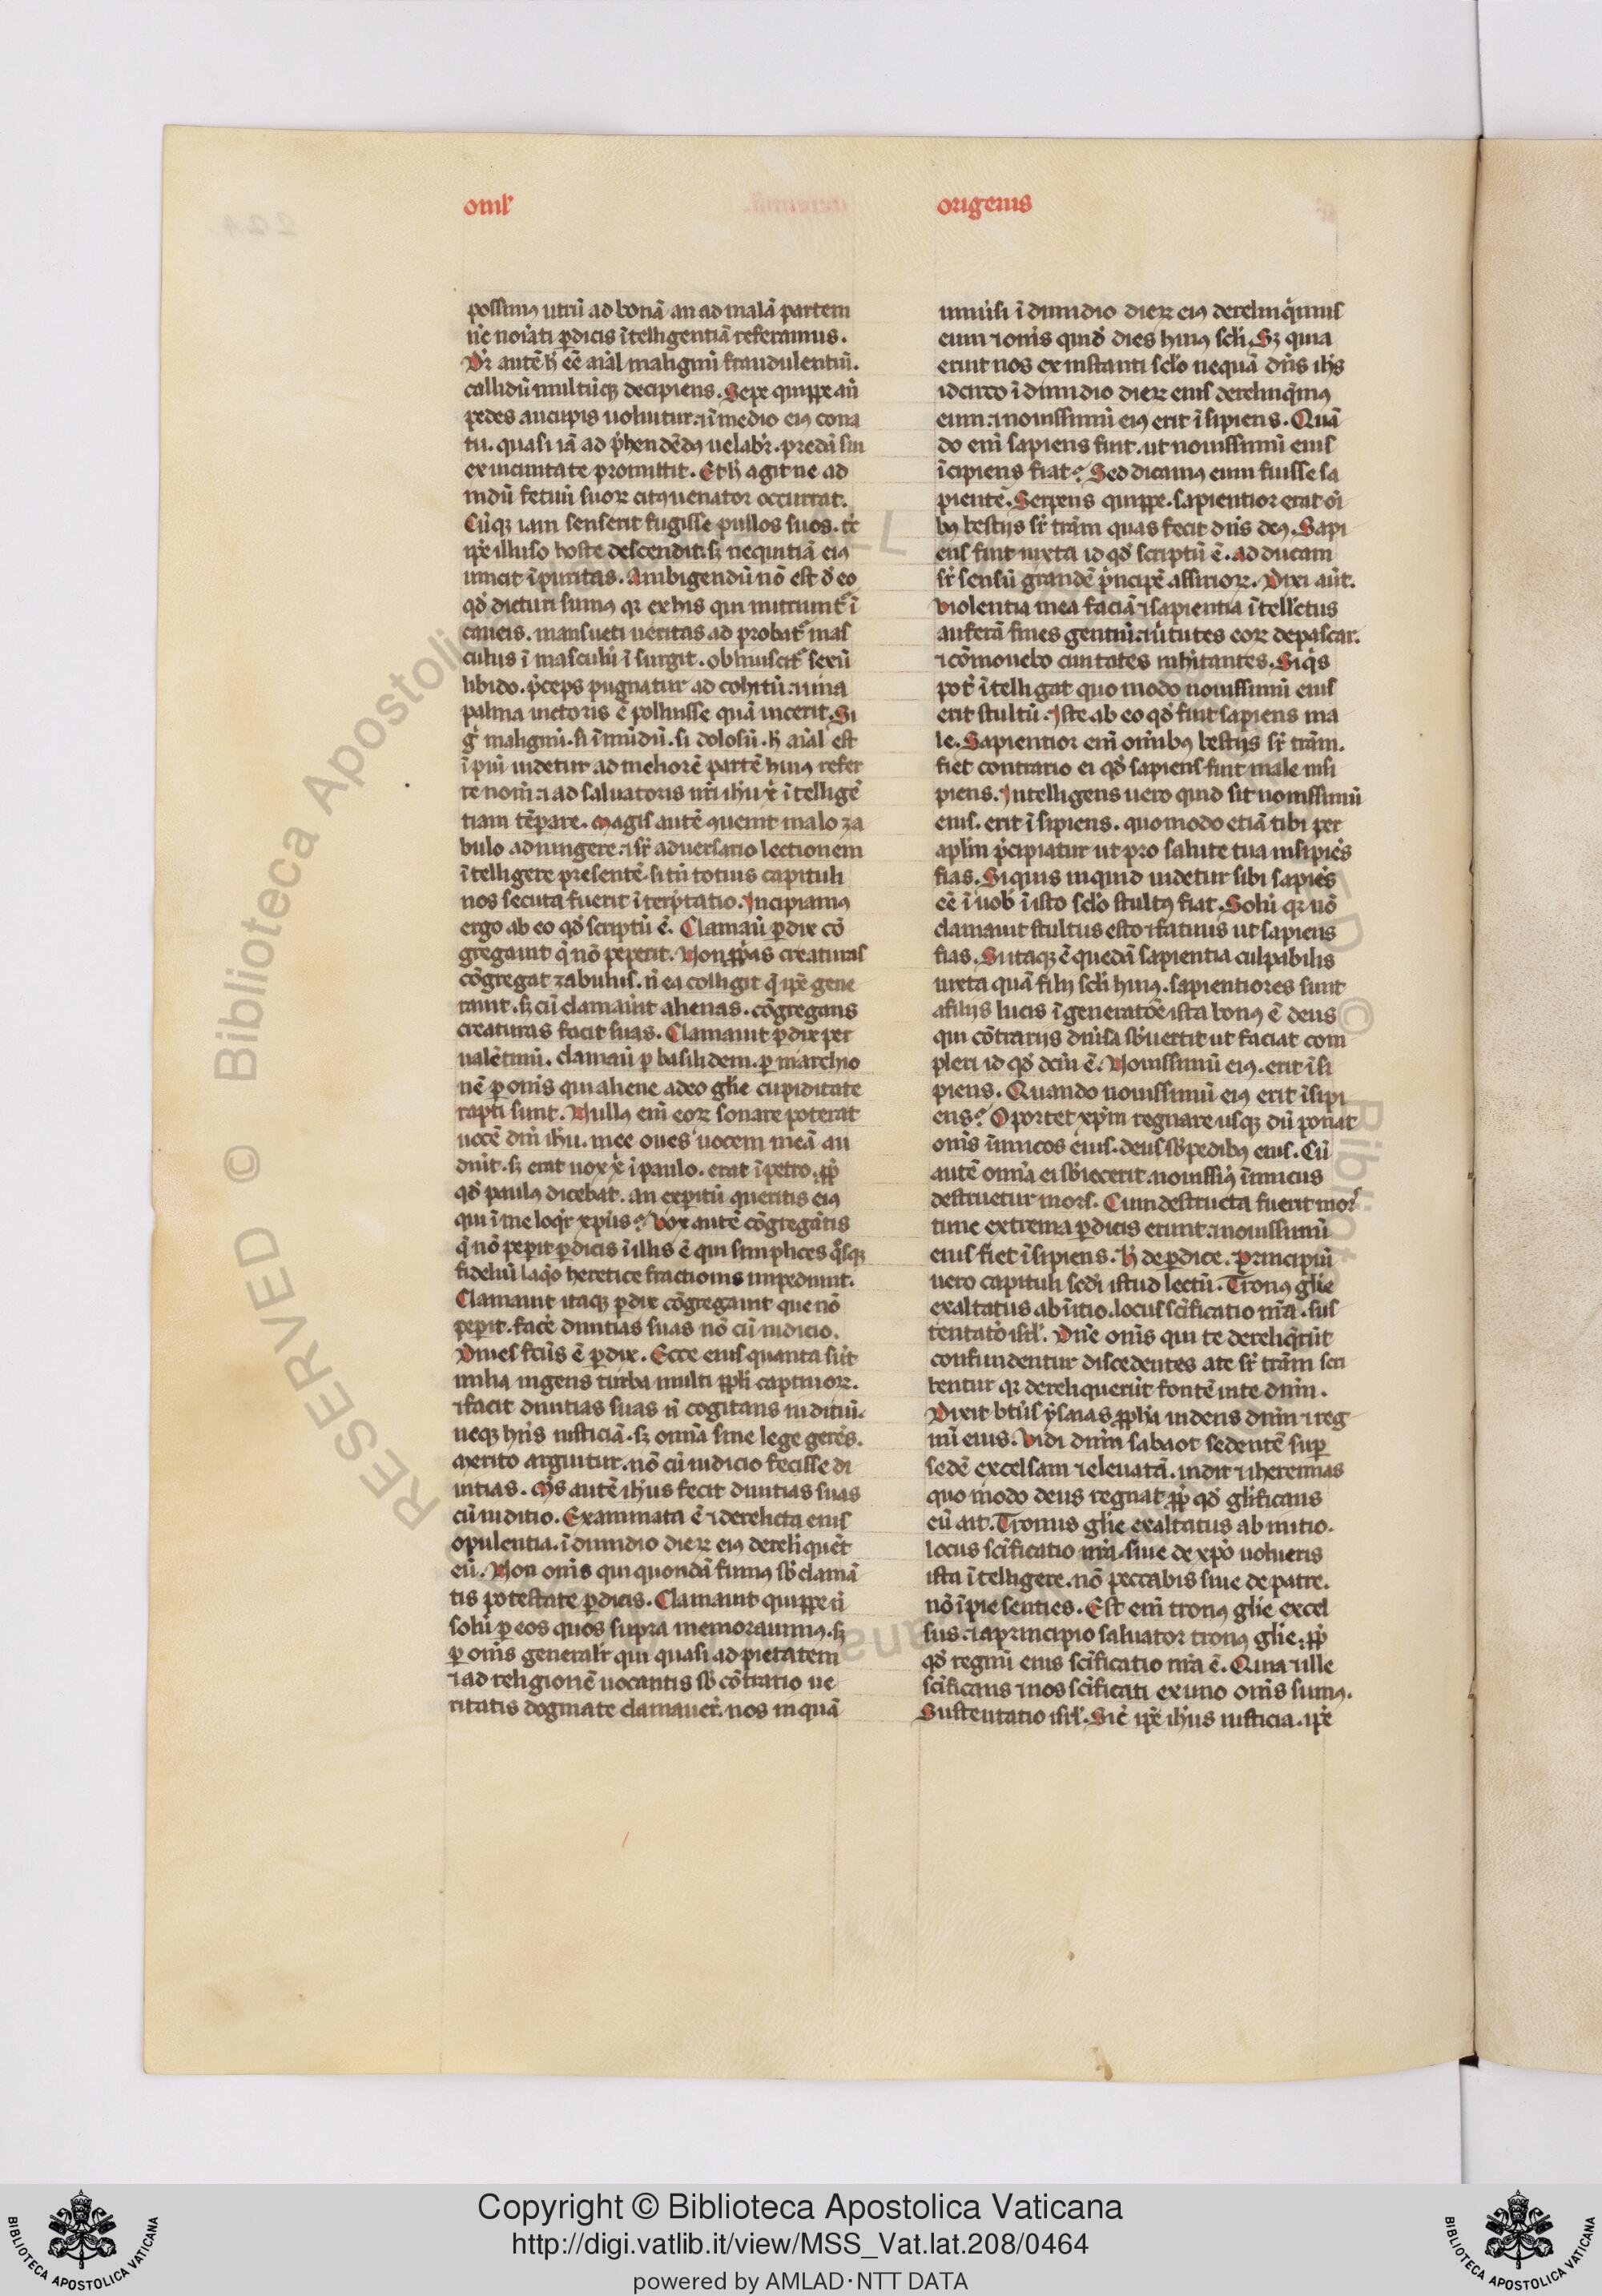 omł
origenis
possimꝰ utrū ad bonā an ad malā partem
nc̄ noiāti ꝑdicis ītelligentiā referamus.
Dr̄ autē h̄ eē aīal malignū fraudulentū.
callidū multūqꝫ decipiens. Sepe quippe añ
pedes aucupis uoluitur. ⁊ ī medio eiꝰ cona
tu. quasi iā ad p̄hendēdꝰ uelabr̄. predā sui
ex uicinitate promittit. Et h̄ agit ne ad
nidū fetuū suoꝝ citꝰ uenator occurrat.
Cūqꝫ iam senserit fugisse pullos suos. tc̄
ip̄e illuso hoste descendit. sꝫ nequitiā eiꝰ
uincit īpuritas. Ambigendū nō est d̄ eo
qd̄ dicturi sumꝰ qꝛ ex his qui nutriunt᷑ ī
caueis. mansueti ueritas ad probat᷑ mas
culus ī masculū ī surgit. obliuiscit᷑ sexū
libido. p̄ceps pugnatur ad cohitū. ⁊ una
palma uictoris ē polluisse quā uicerit. Si
g̊ malignū. si īmūdū. si dolosū. h̄ aīal est
ī piū uidetur ad meliorē partē huiꝰ refer
re nom̄. ⁊ ad saluatoris nr̄i ihū xp̄i ītelligē
tiam tēꝑare. Magis autē ꝯuenit malo za
bulo adiungere. ⁊ sr̄ aduersario lectionem
ītelligere presentē. si tn̄ totius capituli
nos secuta fuerit īterp̄tatio. Incipiamꝰ
ergo ab eo qd̄ scriptū ē. Clamauit ꝑdix cō
gregauit q̄ nō peperit. Non ꝓprias creaturas
cōgregat zabulus. n̄ ea colligit q̄ ip̄e gene
rauit. sꝫ cū clamauit alienas. cōgregans
creaturas facit suas. Clamauit ꝑdix per
ualētinū. clamauit ꝑ basilidem. ꝑ marchio
nē ꝑ om̄s qui aliene adeo glīe cupiditate
rapti sunt. Nullꝰ enī eoꝝ sonare poterat
uocē dn̄i ihū. mee oues uocem meā au
diūt. sꝫ erat uox xp̄i ī paulo. erat ī petro. ꝓp̄
qd̄ paulꝰ dicebat. an exꝑitū queritis eiꝰ
qui ī me loqr̄ xp̄us? Vox autē cōgregātis
q̄ nō peꝑit ꝑdicis ī illis ē qui simplices q̄sqꝫ
fideliū laq̄o heretice fractionis impediunt.
Clamauit itaqꝫ ꝑdix cōgregauit que nō
peꝑit. facē diuitias suas nō cū iudicio.
Diues fcūs ē ꝑdix. Ecce eius quanta sūt
milia ingens turba multi ppli captiuoꝝ.
⁊ facit diuitias suas n̄ cogitans iuditiū.
neqꝫ hn̄s iusticiā. sꝫ omīa sine lege gerēs.
Merito arguitur. nō cū iudicio fecisse di
uitias. Ms̄ autē ih̄us fecit diuitias suas
cū iuditio. Examinata ē ⁊ derelicta eius
opulentia. ī dimidio dieꝝ eiꝰ dereliquēt
eū. Non om̄s qui quondā fuimꝰ sb̄ clamā
tis potestate ꝑdicis. Clamauit quippe n̄
solū ꝑ eos quos supra memorauimꝰ. sꝫ
ꝑ om̄s generalr̄ qui quasi ad pietatem
⁊ ad religionē uocantis sb̄ cōtrario ue
ritatis dogmate clamauer̄. nos inquā
ī dimidio dieꝝ eiꝰ derelinq̄mus
eum ⁊ om̄s quid̄ dies huiꝰ scl̄i. Sꝫ quia
eruit nos ex instanti scl̄o nequā dn̄s ih̄s
idcirco ī dimidio dieꝝ eius derelinq̄mꝰ
eum. ⁊ nouissimū eiꝰ erit ī sipiens. Quā
do enī sapiens fuit. ut nouissimū eius
īcipiens fiat? Sed dicamꝰ eum fuisse sa
pientē. Serpens quippe. sapientior erat oī
bꝰ bestijs sr̄ trām quas fecit dn̄s deꝰ. Sapi
ens fuit iuxta id qd̄ scriptū ē. Ad ducam
sr̄ sensū grandē p̄ncipē assirioꝝ. Dixi aut̄.
Violentia mea faciā ⁊ sapientia ītell̄ctus
auferā fines gentiū. ⁊ uīrtutes eoꝝ depascar.
⁊ cōmouebo ciuitates inhītantes. Siq̄s
pot̄ ītelligat quo modo nouissimū eius
erit stultū. Iste ab eo qd̄ fuit sapiens ma
le. Sapientior enī omībꝰ bestijs sr̄ trām.
fiet contrario ei qd̄ sapiens fuit male insi
piens. Intelligens uero quid sit nouissimū
eius. erit ī sipiens. quomodo etiā tibi per
apl̄m p̄cipiatur ut pro salute tua insipiēs
fias. Siquis inquid uidetur sibi sapiēs
eē ī uob̄ ī isto scl̄o stultꝰ fiat. Solū qꝛ nō
clamauit stultus esto ⁊ fatuus ut sapiens
fias. Si itaqꝫ ē quedā sapientia culpabilis
iuxta quā filij scl̄i huiꝰ. sapientiores sunt
a filijs lucis ī generatiōe ista bonꝰ ē deus
qui cōtrarijs diūsa sb̄uertit ut faciat com
pleri id qd̄ dc̄m ē. Nouissimū eiꝰ. erit ī si
piens. Quando nouissimū eiꝰ erit īsipi
ens? Oportet xp̄m regnare usqꝫ dū ponat
om̄s īimicos eius. deus sb̄ pedibꝰ eius. Cū
autē omīa ei sb̄iecerit. nouissimꝰ īimicus
destruetur mors. Cum destructa fuerit mors
tunc extrema ꝑdicis erunt. ⁊ nouissimū
eius fiet ī sipiens. H̄ de ꝑdice. Principiū
uero capituli sc̄di istud lectū. Tronꝰ glīe
exaltatus ab īitio. locus scīficatio nr̄a. sus
tentatō isrl̄. Dn̄e om̄s qui te dereliq̄rūt
confundentur discedentes a te sr̄ trām scri
bentur qꝛ dereliquerūt fontē uite dn̄m.
Dixit btūs ysaias ꝓpha uidens dn̄m ⁊ reg
nū eius. Vidi dn̄m sabaot sedentē suꝑ
sedē excelsam ⁊ eleuatā. uidit ⁊ iheremias
quo modo deus regnat ꝓp̄ qd̄ glīficans
eū ait. Tronus glīe exaltatus ab initio.
locus scīficatio nr̄a. siue de xp̄o uolueris
ista ītelligere. nō peccabis siue de patre.
nō īpie senties. Est enī tronꝰ glīe excel
sus. ⁊ a principio saluator tronꝰ glīe. ꝓp̄
qd̄ regnū eius scīficatio nr̄a ē. Quia ⁊ ille
scīficans ⁊ nos scīficati ex uno om̄s sumꝰ.
Sustentatio isrl̄. Sic̄ ip̄e ih̄us iusticia. ip̄e
Copyright © Biblioteca Apostolica Vaticana
http://digi.vatlib.it/view/MSS_Vat.lat.208/0464
powered by AMLAD·NTT DATA
BIBLIOTECA APOSTOLICA VATICANA
BIBLIOTECA APOSTOLICA VATICANA